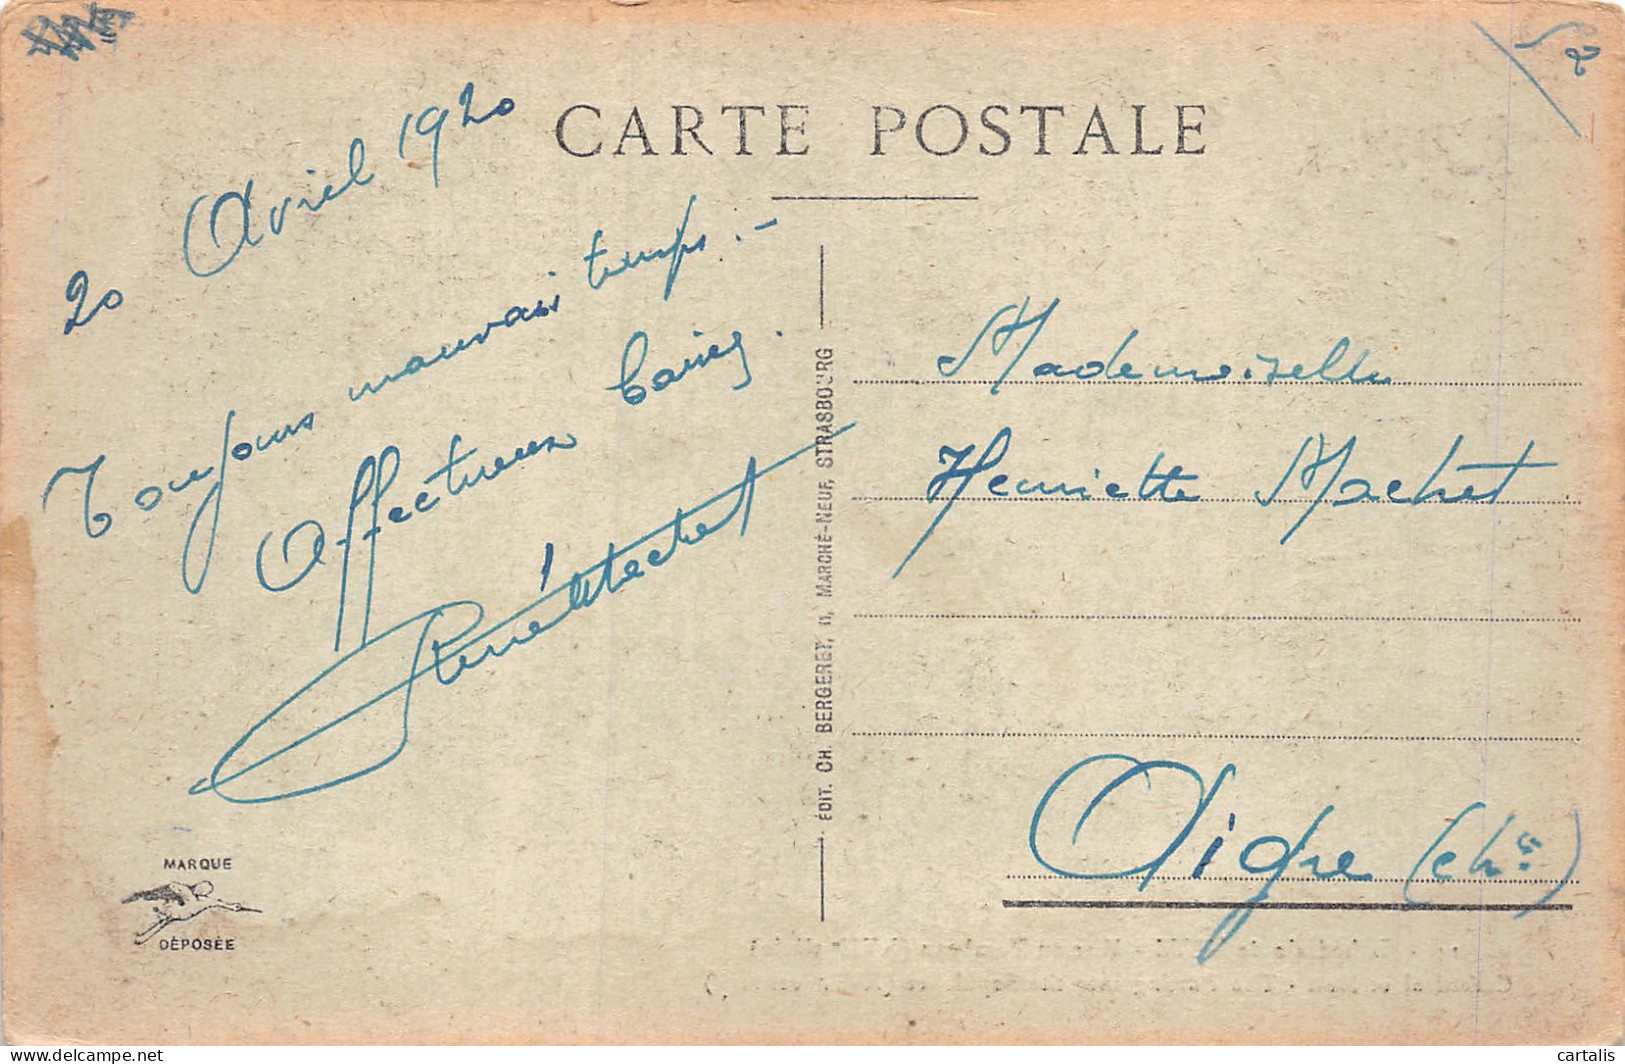 52
CARTE POSTALE
20 Avril 1920
Toujours mauvais temps. -
Affectueux baisers.
René Machet
ÉDIT. CH. BERGERET, 11, MARCHÉ-NEUF, STRASBOURG
Mademoiselle
Henriette Machet
Aigre (Chte)
MARQUE
DÉPOSÉE
delcampe.net
cartalis